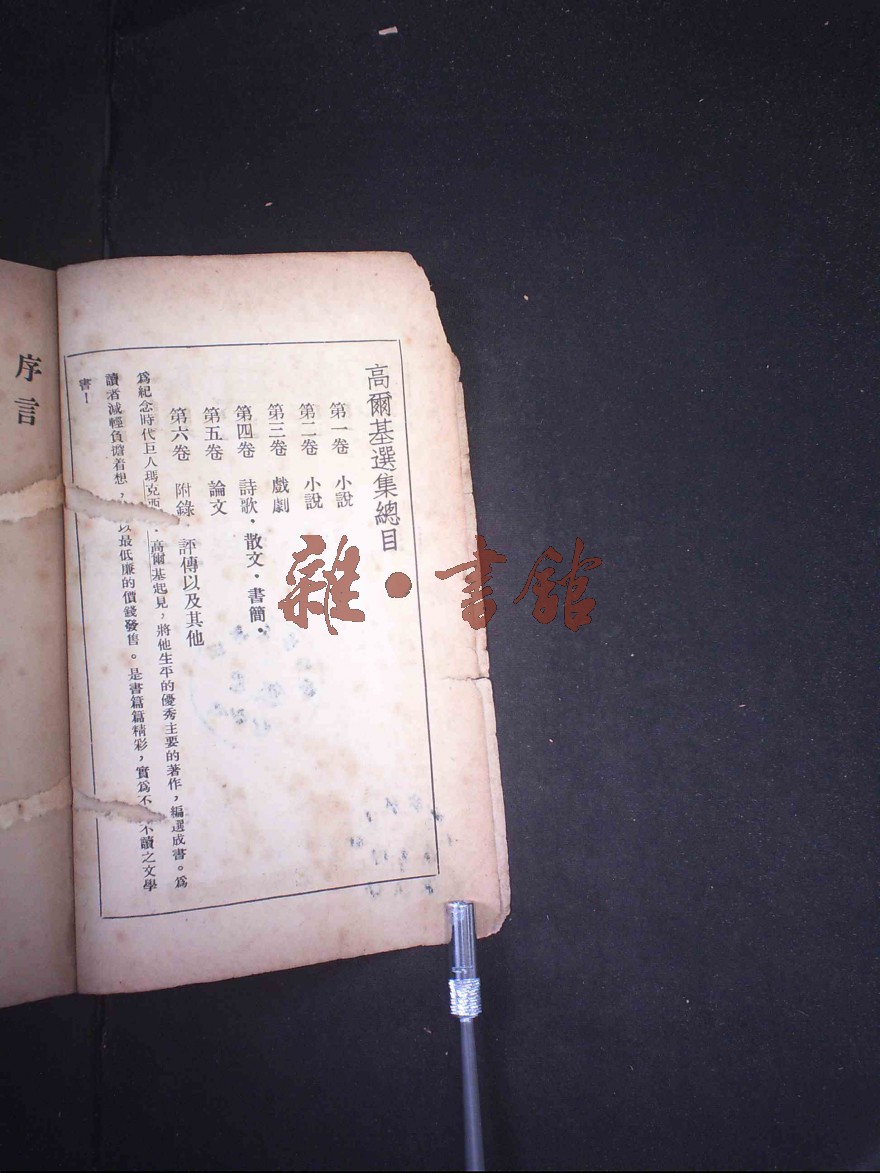 高爾基選集總目
第一卷　小說
第二卷　小說
第三卷　戲劇
第四卷　詩歌・散文・書簡・
第五卷　論文
第六卷　附錄・評傳以及其他
爲紀念時代巨人瑪克西・高爾基起見，將他生平的優秀主要的著作，編選成書。爲
讀者減輕負擔着想，以最低廉的價錢發售。是書篇篇精彩，實爲不不讀之文學
書！
序言
雜・書館